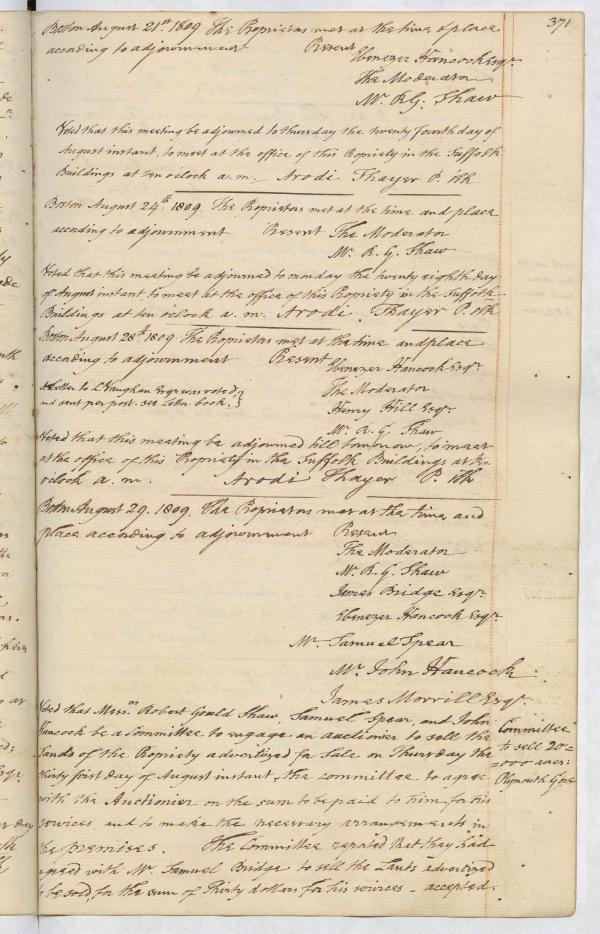 371
Boston August 21st. 1809 The Propietors met at the time & place
according to adjournment Present
Ebenezer Hancock Esqr.
The Moderator
Mr. R G. Shaw
Voted that this meeting be adjourned to thursday the twenty fourth day of
August instant, to meet at the office of this Propiety in the Suffolk
Buildings at ten oclock a. m. Arodi Thayer P. Clk
Boston August 24th. 1809. The Propietors met at the time and place
according to adjournment Present The Moderator
Mr. R. G. Shaw
Voted that this meeting be adjourned to monday the twenty eighth day
of August instant to meet at the office of this Propiety in the Suffolk
Buildings at ten oclock a. m. Arodi Thayer P. Clk
Boston August 28th. 1809. The Propietors met at the time and place
according to adjournment Present
Ebenezer Hancock Esqr.
A Letter to C. Vaughan Esqr was voted,
and sent per post. see Letter book.
The Moderator
Henry Hill Esqr.
Mr. R. G. Shaw
Voted that this meeting be adjourned till tomorrow, to meet
at the office of this Propiety in the Suffolk Buildings at ten
oclock a. m. Arodi Thayer P. Clk
Boston August 29. 1809. The Propietors met at the time and
place according to adjournment Present
The Moderator
Mr. R. G. Shaw
James Bridge Esqr.
Ebenezer Hancock Esqr.
Mr. Samuel Spear
Mr. John Hancock
James Morrill Esqr.
Voted that Messrs. Robert Gould Shaw, Samuel Spear, and John
Hancock be a Committee to engage an auctionier to sell the
Lands of the Propiety advertized for Sale on Thursday the
thirty first day of August instant, the committee to agree
with the Auctionier on the sum to be paid to him for his
services and to make the necessary arrangements in
the premises. The Committee reported that they had
agreed with Mr. Samuel Bridge to sell the Lands advertized
to be sold, for the sum of Thirty dollars for his services - accepted.
Committee
to sell 20=
=000 acres:
Plymouth Gore